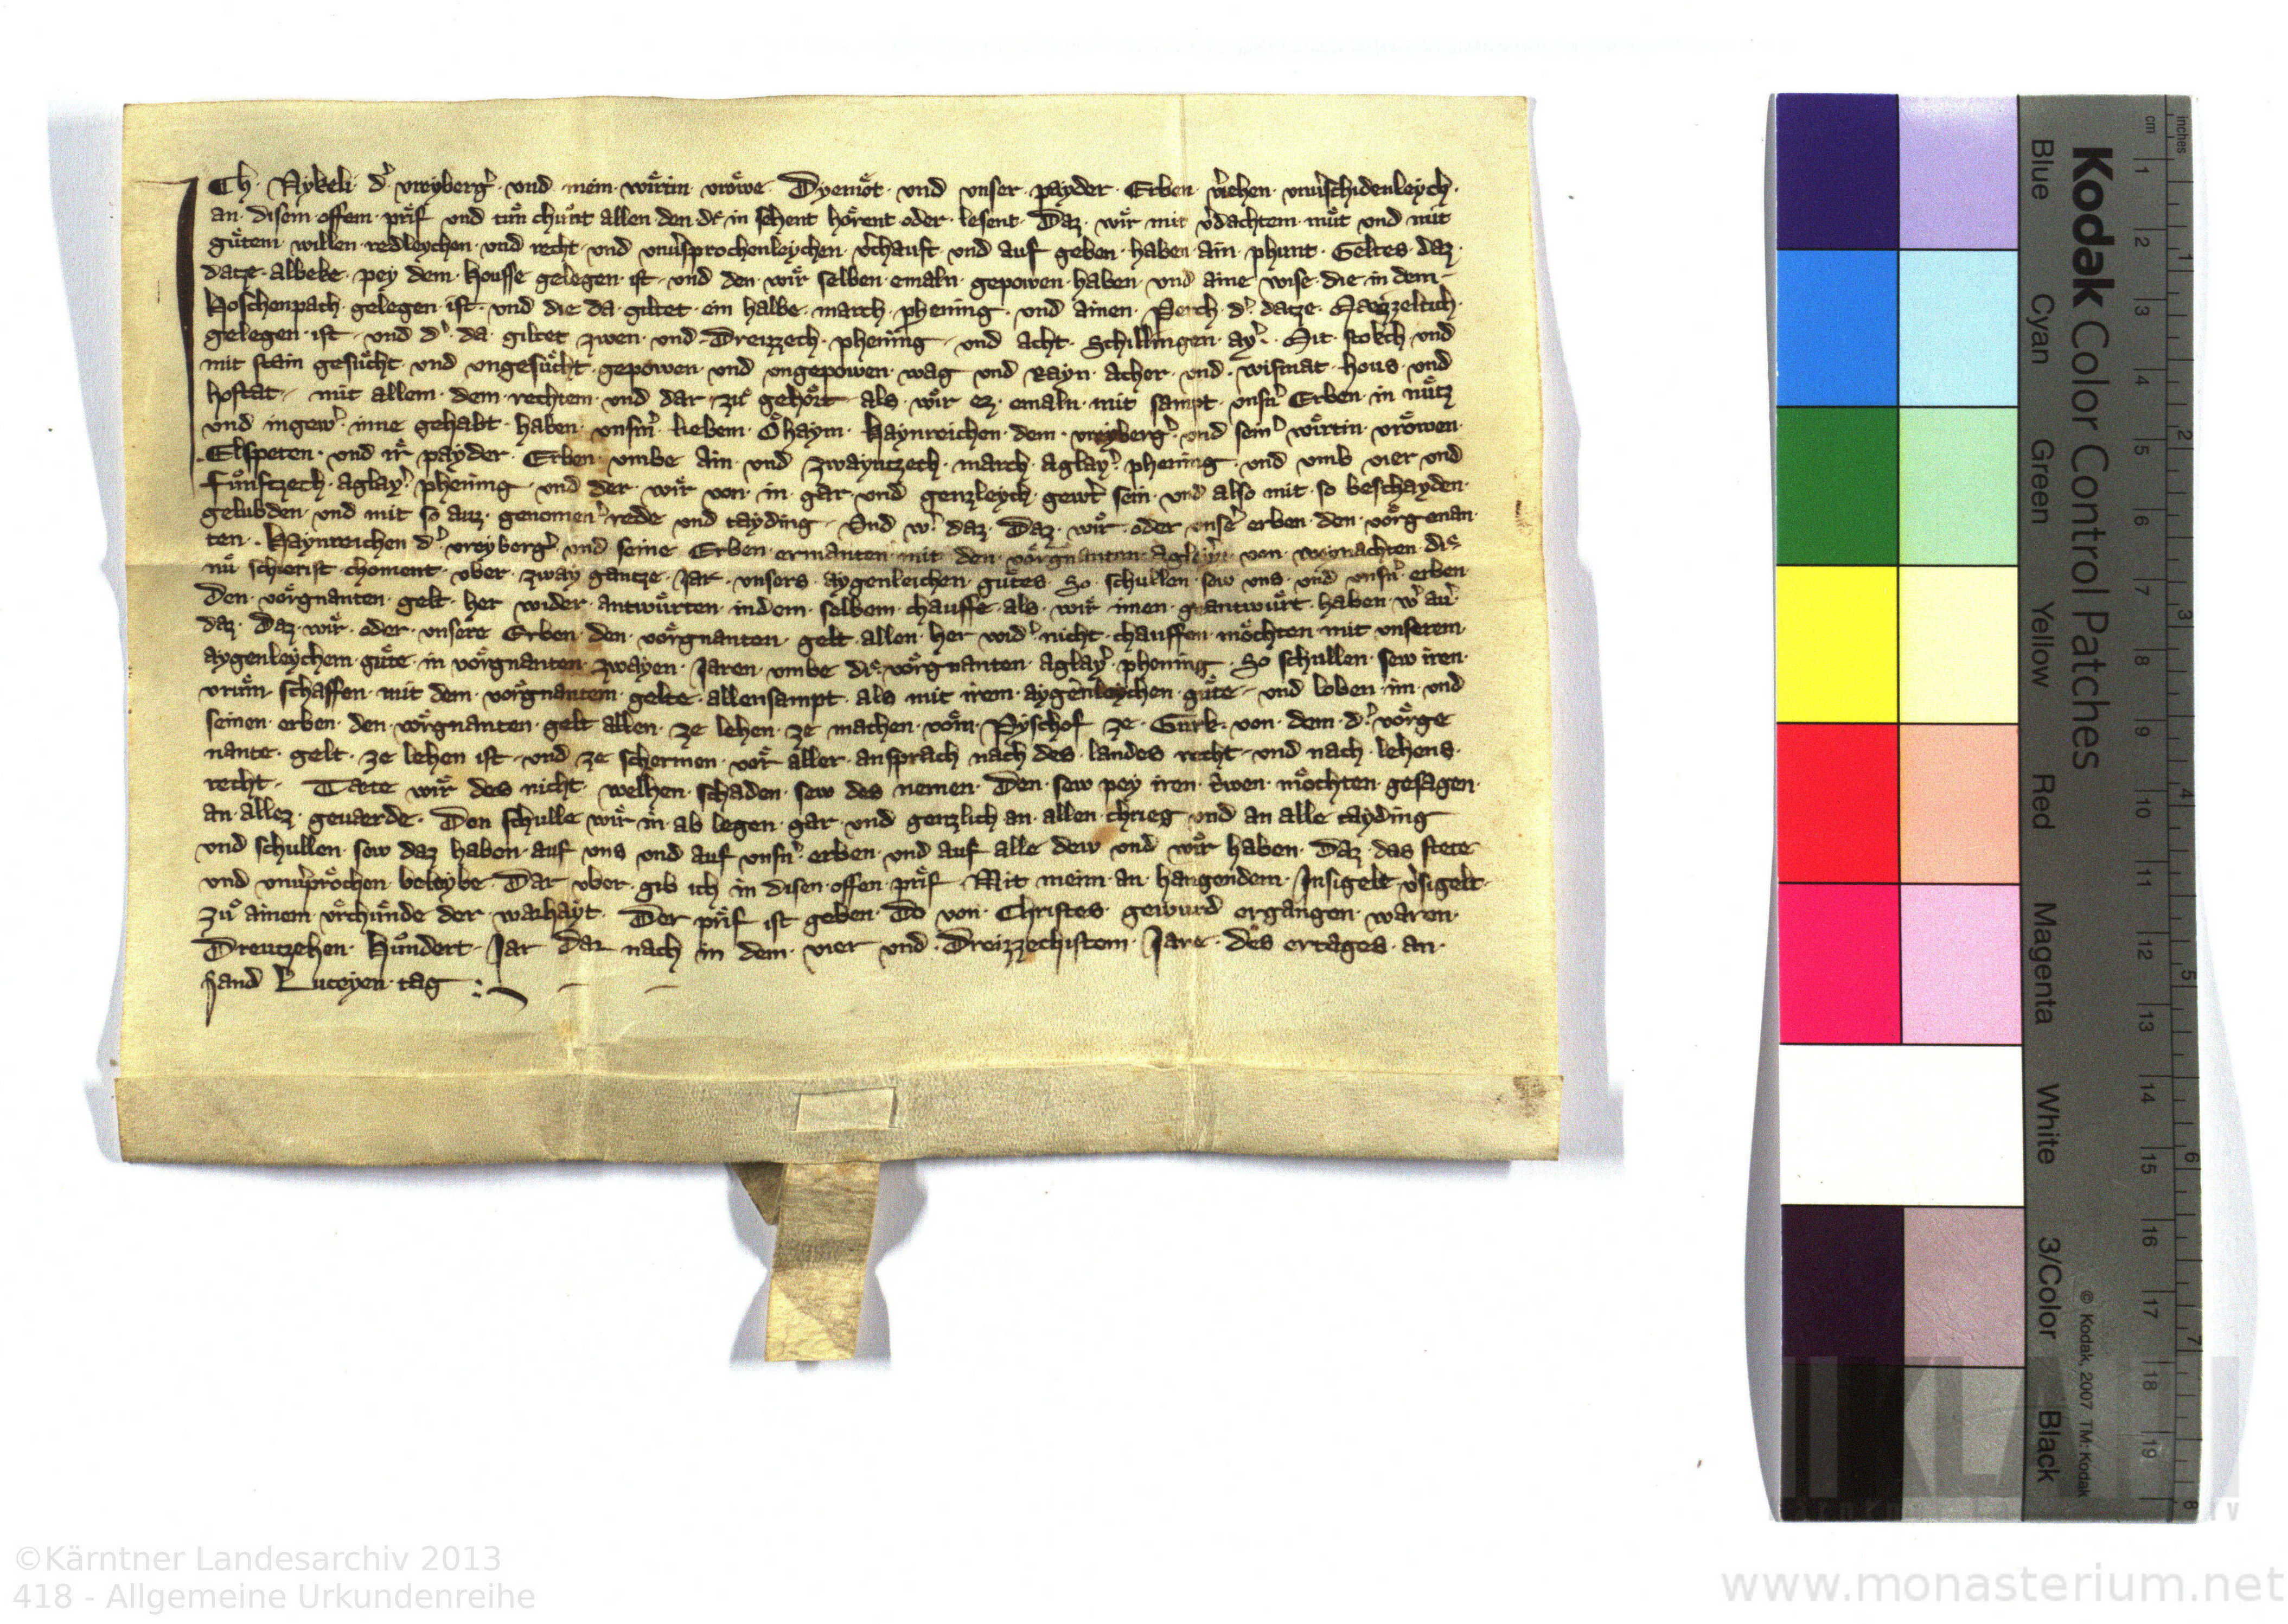 Ich · Nykeli · d᾽ · vreyberg᾽ · vnd · mein · wu̍rtin · vrowe · Dyemůt · und · vnser · payder · Erben · v᾽iehen · vnu᾽schidenleych ·
an · disem · offem · prif · vnd · tůn · chůnt · allen · den · di · in · sehent · hörent · oder · lesent · Daz · wir · mit · v᾽dachtem · můt · vnd · mit
gůtem · willen · redleychen · vnd · recht · vnd · vnu᾽sprochenleychen · v᾽chauft · vnd · auf · geben · haben · ain · phunt · Geltes · daz ·
datze · albeke · pey · dem · housse · gelegen · ist · vnd · den · wir · selben · emaln · gepowen · haben · vnd · aine · wise · die · in · dem
hoschenpach · gelegen · ist · vnd · die · da · giltet · ein · halbe · march · phening · vnd · ainen · Perch · d᾽ · datze ·
gelegen · ist · vnd · d᾽ · da · giltet · zwen · vnd · Dreizzech · phening · vnd · acht · Schillingen · ay᾽ · Mit · stokch · vnd
mit · stain · gesůcht · vnd · vngesůcht · gepowen · vnd · vngepowen · wag · vnd · Rayn · Acher · vnd · wismat · hous · vnd
hofstat · mit · allem · dem · rechtem · vnd · dar · zů · gehört · als · wir · ez · emaln · mit · sampt · vnsn᾽ · Erben · in · nůtz
vnd · ingew᾽ · inne · gehabt · haben · vnsm᾽ · liebem · Öhaym · Haynreichen · dem · vreyberg᾽ · vnd · sein᾽ · wirtin · vrowen ·
Elspeten · vnd · ir · payder · Erben · vmbe · Ain · vnd · zwayntzech · march · Aglay᾽ · phening · vnd · vmb · vier · vnd
Fůnftzech · Aglay᾽ · phening · vnd · der · wir · von · in · gar · vnd · genzleych · gew᾽t · sein · vnd · also · mit · so · beschayden ·
gelubden · vnd · mit · so · auz · genomen᾽ · rede · vnd · tayding · Vnd · w᾽ · daz · Daz · wir · oder · vnse᾽ · erben · den · vorgenan
ten · Haynreichen · d᾽ · vreyberg᾽ · vnd · seine · Erben · ermanten · mit · den · vorgnanten · aglay᾽ · von · weinachten · di
nů · schierist · choment · vber · zway · gantze · Jar · vnsers · aygenleichen · gůtes · So · schullen · sew · vns · vnd · vnsn᾽ · erben ·
Den · vorgnanten · gelt · her · wider · antwůrten · in dem · selbem · chauffe · als · wir · imen · geantwůrt · haben · w᾽ · au᾽
daz · Daz · wir · oder · vnsere · Erben · den · vorgnanten · gelt · allen · her · wid᾽ · nicht · chauffen · möchten · mit · vnserem
aygenleychem · gůte · in · vorgnanten · zwayen · Jaren · vmbe · di · vorgnanten · aglay᾽ · phening · So · schullen · sew · iren ·
vrům · schaffen · mit · dem · vorgnantem · gelte · allensampt · als · mit · irem · aygenleychen · gůte · vnd · loben · im · vnd
seinen · erben · den · vorgnanten · gelt · allen · ze · lehen · ze · machen · vom · Pyschof · ze · Gurk · von · dem · d᾽ · vorge
nante · gelt · ze · lehen · ist · vnd · ze · schermen · vor · aller · ansprach · nach · des · landes · recht · vnd · nach · lehens ·
recht · Taete · wir · des · nicht · welhen · schaden · sew · des · nemen · Den · sew · pey · iren · t᾽wen · möchten · gesagen ·
an · allez · geuaerde · Den · schulle · wir · in · ab · legen · gar · vnd · genzlich · an · allen · chrieg · vnd · an · alle · tayding
vnd · schullen · sew · daz · haben · auf · vns · vnd · auf · vnsn᾽ · erben · vnd · auf · alle · dew · vnd · wir · haben · Daz · das · stete
vnd · vnu᾽prochen · beleybe · Dar · vber · gib · ich · in · disen · offen · prif · Mit · meim · an · hangendem · Insigele · v᾽sigelt ·
zů · ainem · vrchůnde · der · warhayt · Der · prif · ist · geben · Do · von · Christes · gewurd · ergangen · waren ·
Dreutzehen · Hůndert · Jar · Dar · nach · in · dem · vier · vnd · Dreizzechistem · Jare · des · ertages · an ·
sand · Luceyen · tag
Kodak Color Control Patches
Blue Cyan Green Yellow Red Magenta White 3/Color Black
© Kodak, 2007 TM: Kodak
cm 1 2 3 4 5 6 7 8 9 10 11 12 13 14 15 16 17 18 19
inches 1 2 3 4 5 6 7 8
©Kärntner Landesarchiv 2013
418 - Allgemeine Urkundenreihe
www.monasterium.net